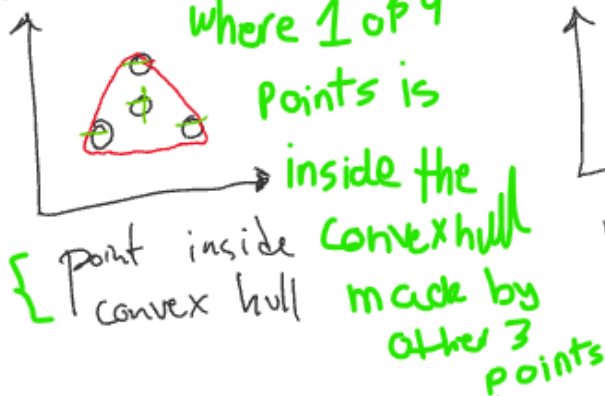 where 1 of 4
points is
inside the
convexhull
made by
other 3
points
point inside
convex hull